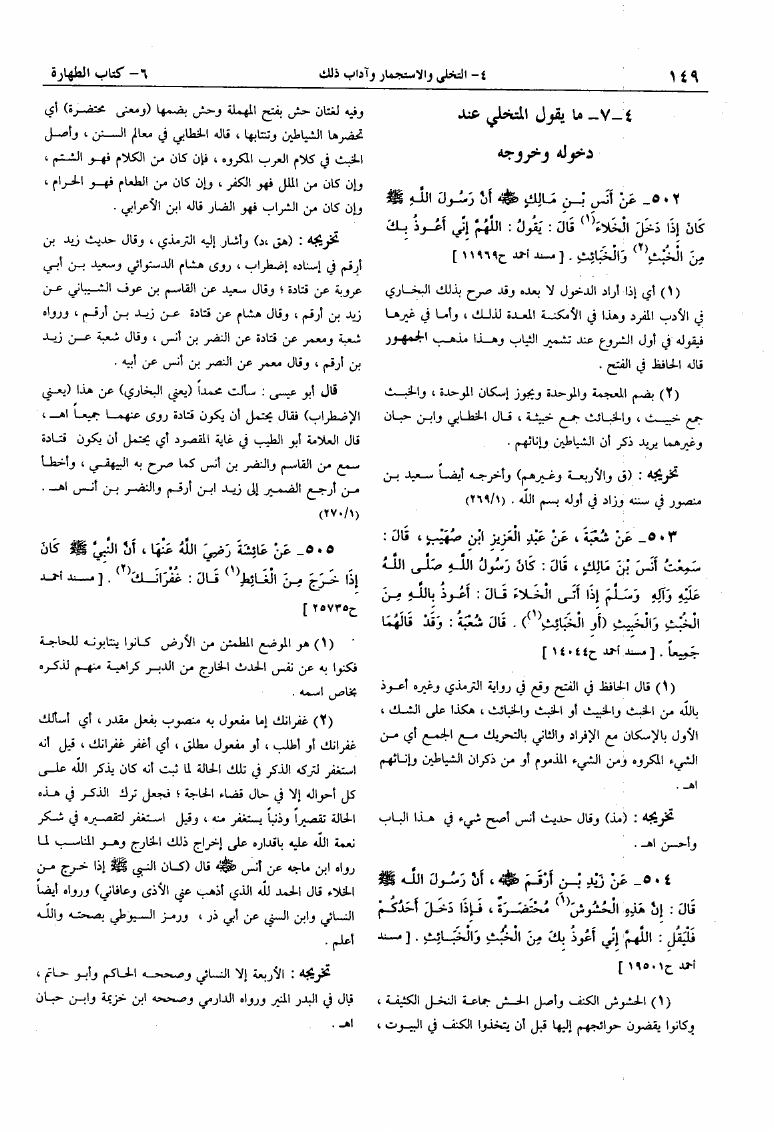 ١٤٩
٤- التخلي والاستجمار وآداب ذلك
٦- كتاب الطهارة
٤-٧- ما يقول المتخلي عند
دخوله وخروجه
٥٠٢- عَنْ أَنَسِ بْنِ مَالِكٍ ﷺ أَنَّ رَسُولَ اللَّهِ ﷺ
كَانَ إِذَا دَخَلَ الْخَلاَءَ(١) قَالَ: يَقُولُ: اللَّهُمَّ إِنِّي أَعُوذُ بِكَ
مِنَ الْخُبْثِ(٢) وَالْخَبَائِثِ. [مسند أحمد ح١١٩٦٩]
(١) أي إذا أراد الدخول لا بعده وقد صرح بذلك البخاري
في الأدب المفرد وهذا في الأمكنة المعدة لذلك، وأما في غيرها
فيقوله في أول الشروع عند تشمير الثياب وهذا مذهب الجمهور
قاله الحافظ في الفتح.
(٢) بضم المعجمة والموحدة ويجوز إسكان الموحدة، والخبث
جمع خبيث، والخبائث جمع خبيثة، قال الخطابي وابن حبان
وغيرهما يريد ذكر أن الشياطين وإناثهم.
تخريجه: (ق والأربعة وغيرهم) وأخرجه أيضاً سعيد بن
منصور في سننه وزاد في أوله بسم الله. (٢٦٩/١)
٥٠٣- عَنْ شُعْبَةَ، عَنْ عَبْدِ الْعَزِيزِ ابْنِ صُهَيْبٍ، قَالَ:
سَمِعْتُ أَنَسَ بْنَ مَالِكٍ، قَالَ: كَانَ رَسُولُ اللَّهِ صَلَّى اللَّهُ
عَلَيْهِ وَآلِهِ وَسَلَّمَ إِذَا أَتَى الْخَلاَءَ قَالَ: أَعُوذُ بِاللَّهِ مِنَ
الْخُبْثِ وَالْخَبِيثِ (أَوِ الْخَبَائِثِ(١)). قَالَ شُعْبَةُ: وَقَدْ قَالَهُمَا
جَمِيعاً. [مسند أحمد ح١٤٠٤٤]
(١) قال الحافظ في الفتح وقع في رواية الترمذي وغيره أعوذ
بالله من الخبث والخبيث أو الخبث والخبائث، هكذا على الشك،
الأول بالإسكان مع الإفراد والثاني بالتحريك مع الجمع أي من
الشيء المكروه ومن الشيء المذموم أو من ذكران الشياطين وإناثهم
اهـ.
تخريجه: (مذ) وقال حديث أنس أصح شيء في هذا الباب
وأحسن اهـ.
٥٠٤- عَنْ زَيْدِ بْنِ أَرْقَمَ ﷺ، أَنَّ رَسُولَ اللَّه ﷺ
قَالَ: إِنَّ هَذِهِ الْحُشُوشَ(١) مُحْتَضَرَةٌ، فَإِذَا دَخَلَ أَحَدُكُمْ
فَلْيَقُلْ: اللَّهُمَّ إِنِّي أَعُوذُ بِكَ مِنَ الْخُبُثِ وَالْخَبَائِثِ. [مسند
أحمد ح١٩٥٠١]
(١) الحشوش الكنف وأصل الحش جماعة النخل الكثيفة،
وكانوا يقضون حوائجهم إليها قبل أن يتخذوا الكنف في البيوت،
وفيه لغتان حش بفتح المهملة وحش بضمها (ومعنى محتضرة) أي
تحضرها الشياطين وتنتابها، قاله الخطابي في معالم السنن، وأصل
الخبث في كلام العرب المكروه، فإن كان من الكلام فهو الشتم،
وإن كان من الملل فهو الكفر، وإن كان من الطعام فهو الحرام،
وإن كان من الشراب فهو الضار قاله ابن الأعرابي.
تخريجه: (هق،د) وأشار إليه الترمذي، وقال حديث زيد بن
أرقم في إسناده إضطراب، روى هشام الدستوائي وسعيد بن أبي
عروبة عن قتادة؛ وقال سعيد عن القاسم بن عوف الشيباني عن
زيد بن أرقم، وقال هشام عن قتادة عن زيد بن أرقم، ورواه
شعبة ومعمر عن قتادة عن النضر بن أنس، وقال شعبة عن زيد
بن أرقم، وقال معمر عن النصر بن أنس عن أبيه.
قال أبو عيسى: سألت محمداً (يعني البخاري) عن هذا (يعني
الإضطراب) فقال يحتمل أن يكون قتادة روى عنهما جميعاً اهـ،
قال العلامة أبو الطيب في غاية المقصود أي يحتمل أن يكون قتادة
سمع من القاسم والنضر بن أنس كما صرح به البيهقي، وأخطأ
من أرجع الضمير إلى زيد ابن أرقم والنضر بن أنس اهـ.
(٢٧٠/١)
٥٠٥- عَنْ عَائِشَةَ رَضِيَ اللَّهُ عَنْهَا، أَنَّ النَّبِيَّ ﷺ كَانَ
إِذَا خَرَجَ مِنَ الْغَائِطِ(١) قَالَ: غُفْرَانَكَ(٢). [مسند أحمد
ح٢٥٧٣٥]
(١) هو الموضع المطمئن من الأرض كانوا ينتابونه للحاجة
فكنوا به عن نفس الحدث الخارج من الدبر كراهية منهم لذكره
بخاص اسمه.
(٢) غفرانك إما مفعول به منصوب بفعل مقدر، أي أسألك
غفرانك أو أطلب، أو مفعول مطلق، أي أغفر غفرانك، قيل أنه
استغفر لتركه الذكر في تلك الحالة لما ثبت أنه كان يذكر الله على
كل أحواله إلا في حال قضاء الحاجة؛ فجعل ترك الذكر في هذه
الحالة تقصيراً وذنباً يستغفر منه، وقيل استغفر لتقصيره في شكر
نعمة الله عليه باقداره على إخراج ذلك الخارج وهو المناسب لما
رواه ابن ماجه عن أنس ﷺ قال (كان النبي ﷺ إذا خرج من
الخلاء قال الحمد لله الذي أذهب عني الأذى وعافاني) ورواه أيضاً
النسائي وابن السني عن أبي ذر، ورمز السيوطي بصحته والله
أعلم.
تخريجه: الأربعة إلا النسائي وصححه الحاكم وأبو حاتم،
قال في البدر المنير ورواه الدارمي وصححه ابن خزيمة وابن حبان
اهـ.